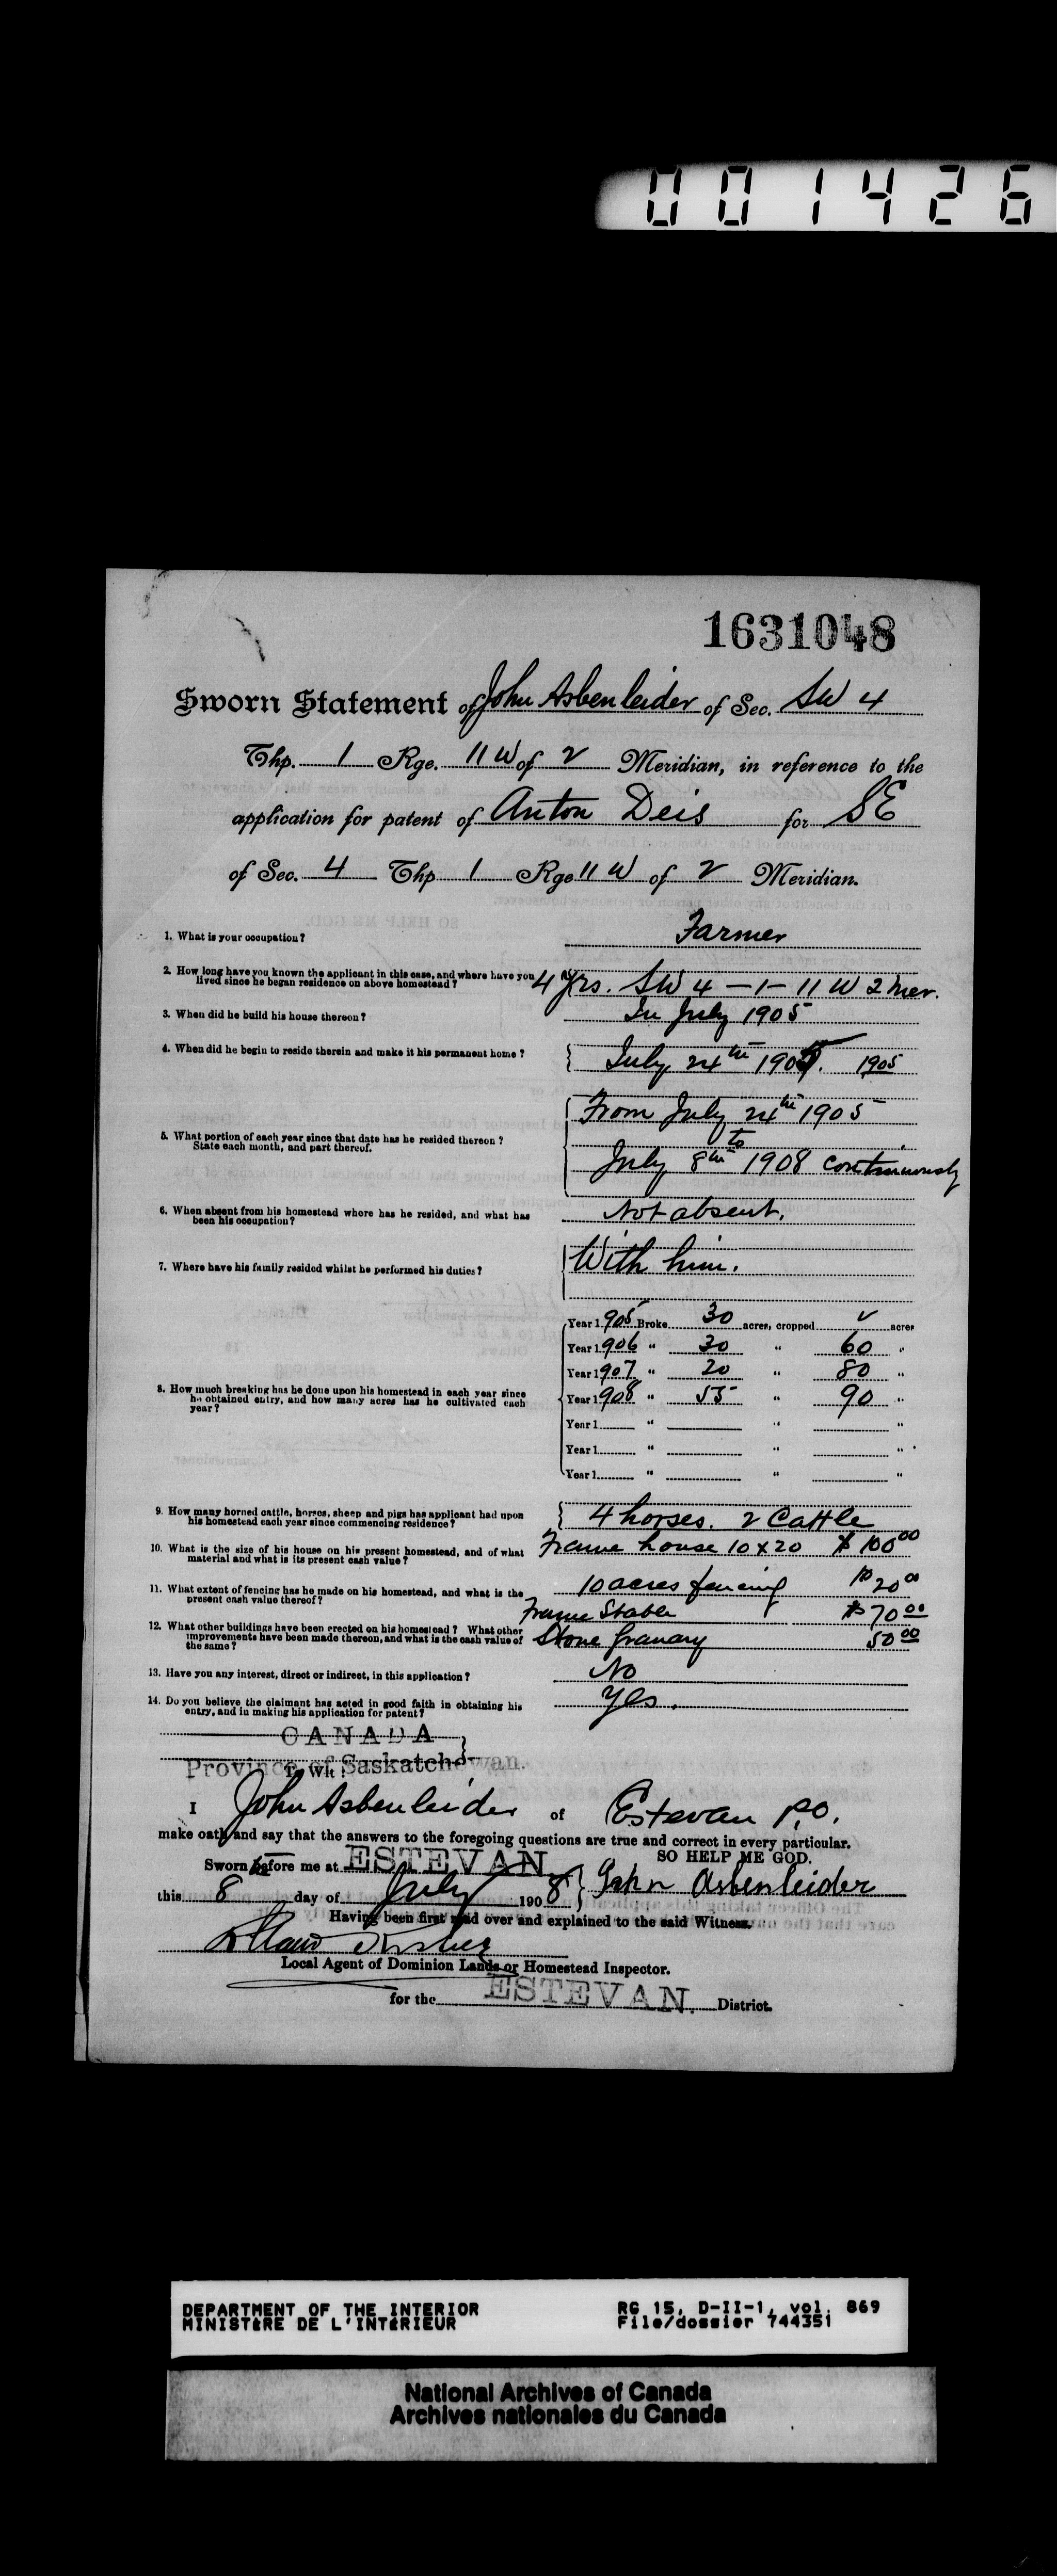 001426
1631048
Sworn Statement of John Asbenleider of Sec. SW 4
Thp. 1 Rge. 11 W of 2 Meridian, in reference to the
application for patent of Anton Deis for SE
of Sec. 4 Thp 1 Rge 11 W of 2 Meridian.
1. What is your occupation? Farmer
2. How long have you known the applicant in this case, and where have you
lived since he began residence on above homestead? 4 yrs. SW 4 – 1 – 11 W 2 Mer.
3. When did he build his house thereon? In July 1905
4. When did he begin to reside therein and make it his permanent home? July 24th 1905. 1905
From July 24th 1905
5. What portion of each year since that date has he resided thereon?
State each month, and part thereof.
to
July 8th 1908 continuously
6. When absent from his homestead where has he resided, and what has
been his occupation? Not absent.
7. Where have his family resided whilst he performed his duties? With him.
Year 1905 Broke 30 acres, cropped acres
Year 1906 " 30 " 60 "
Year 1907 " 20 " 80 "
8. How much breaking has he done upon his homestead in each year since
he obtained entry, and how many acres has he cultivated each
year?
Year 1908 " 55 " 90 "
Year 1 " " "
Year 1 " " "
Year 1 " " "
9. How many horned cattle, horses, sheep and pigs has applicant had upon
his homestead each year since commencing residence? 4 horses. 2 Cattle
10. What is the size of his house on his present homestead, and of what
material and what is its present cash value? Frame house 10 x 20 $ 100 00
11. What extent of fencing has he made on his homestead, and what is the
present cash value thereof? 10 acres fencing $ 20 00
Frame Stable $ 70 00
12. What other buildings have been erected on his homestead? What other
improvements have been made thereon, and what is the cash value of
the same? Stone Granary 50 00
13. Have you any interest, direct or indirect, in this application? No
14. Do you believe the claimant has acted in good faith in obtaining his
entry, and in making his application for patent? Yes.
CANADA
Province of Saskatchewan.
To Wit:
I John Asbenleider of Estevan P.O.
make oath and say that the answers to the foregoing questions are true and correct in every particular.
SO HELP ME GOD.
Sworn before me at ESTEVAN
this 8 day of July 1908 John Asbenleider
Having been first read over and explained to the said Witness.
Local Agent of Dominion Lands or Homestead Inspector.
for the ESTEVAN. District.
DEPARTMENT OF THE INTERIOR
MINISTÈRE DE L'INTÉRIEUR
RG 15, D-II-1, vol. 869
File/dossier 744351
National Archives of Canada
Archives nationales du Canada